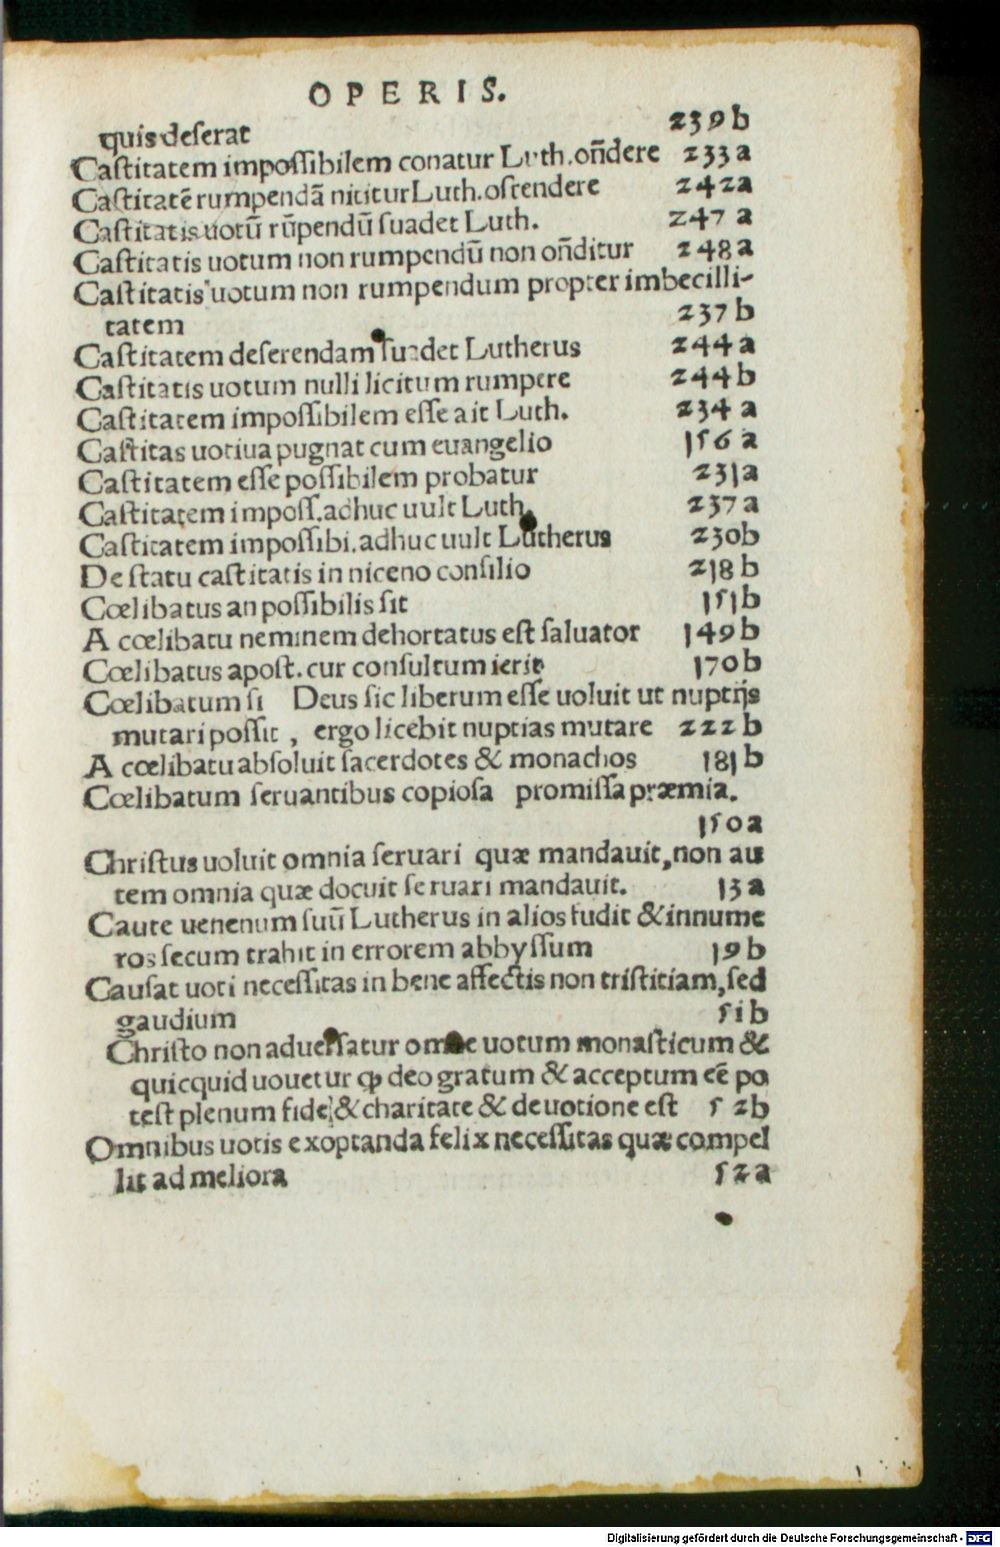 OPERIS.
quis deserat 239b
Castitatem impossibilem conatur Luth. on̄dere 233a
Castitatē rumpendā nititur Luth. ostendere 242a
Castitatis uotū rūpendū suadet Luth. 247 a
Castitatis uotum non rumpendū non on̄ditur 248a
Castitatis uotum non rumpendum propter imbecilli-
tatem 237b
Castitatem deserendam suadet Lutherus 244a
Castitatis uotum nulli licitum rumpere 244b
Castitatem impossibilem esse ait Luth. 234 a
Castitas uotiua pugnat cum euangelio 156 a
Castitatem esse possibilem probatur 231a
Castitatem imposs. adhuc uult Luth. 237a
Castitatem impossibi. adhuc uult Lutherus 230b
De statu castitatis in niceno consilio 218b
Cœlibatus an possibilis sit 151b
A cœlibatu neminem dehortatus est saluator 149b
Cœlibatus apost. cur consultum ierit 170b
Cœlibatum si Deus sic liberum esse uoluit ut nuptijs
mutari possit, ergo licebit nuptias mutare 222b
A cœlibatu absoluit sacerdotes & monachos 181b
Cœlibatum seruantibus copiosa promissa præmia.
150a
Christus uoluit omnia seruari quæ mandauit, non au
tem omnia quæ docuit seruari mandauit. 13a
Caute uenenum suū Lutherus in alios fudit & innume
ros secum trahit in errorem abbyssum 19b
Causat uoti necessitas in bene affectis non tristitiam, sed
gaudium 51b
Christo non aduersatur omne uotum monasticum &
quicquid uouetur ꝙ deo gratum & acceptum eē po
test plenum fidei & charitate & deuotione est 52b
Omnibus uotis exoptanda felix necessitas quæ compel
lit ad meliora 52a
Digitalisierung gefördert durch die Deutsche Forschungsgemeinschaft - DFG